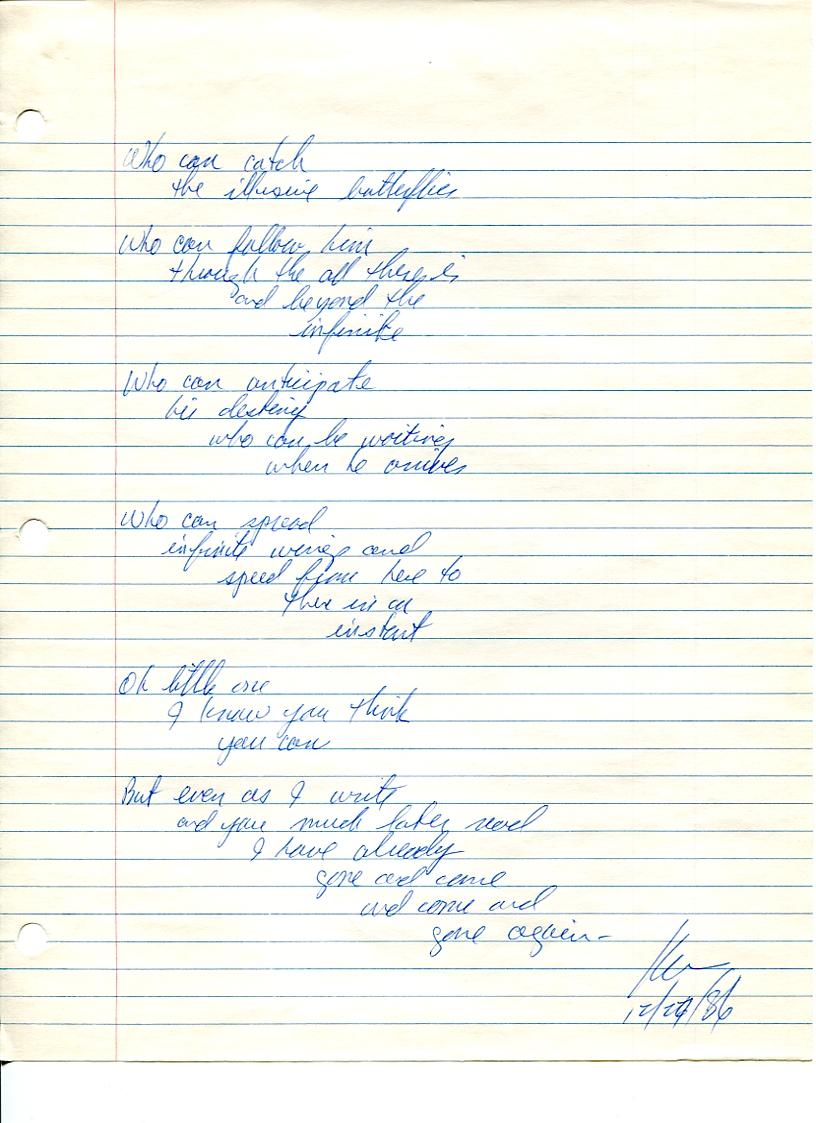 Who can catch
the illusive butterflies
Who can follow him
through the all there is
and beyond the
infinite
Who can anticipate
his destiny
who can be waiting
when he arrives
Who can spread
infinite wings and
speed from here to
there in an
instant
Oh little one
I know you think
you can
But even as I write
and you much later read
I have already
gone and came
and come and
gone again-
12/24/86